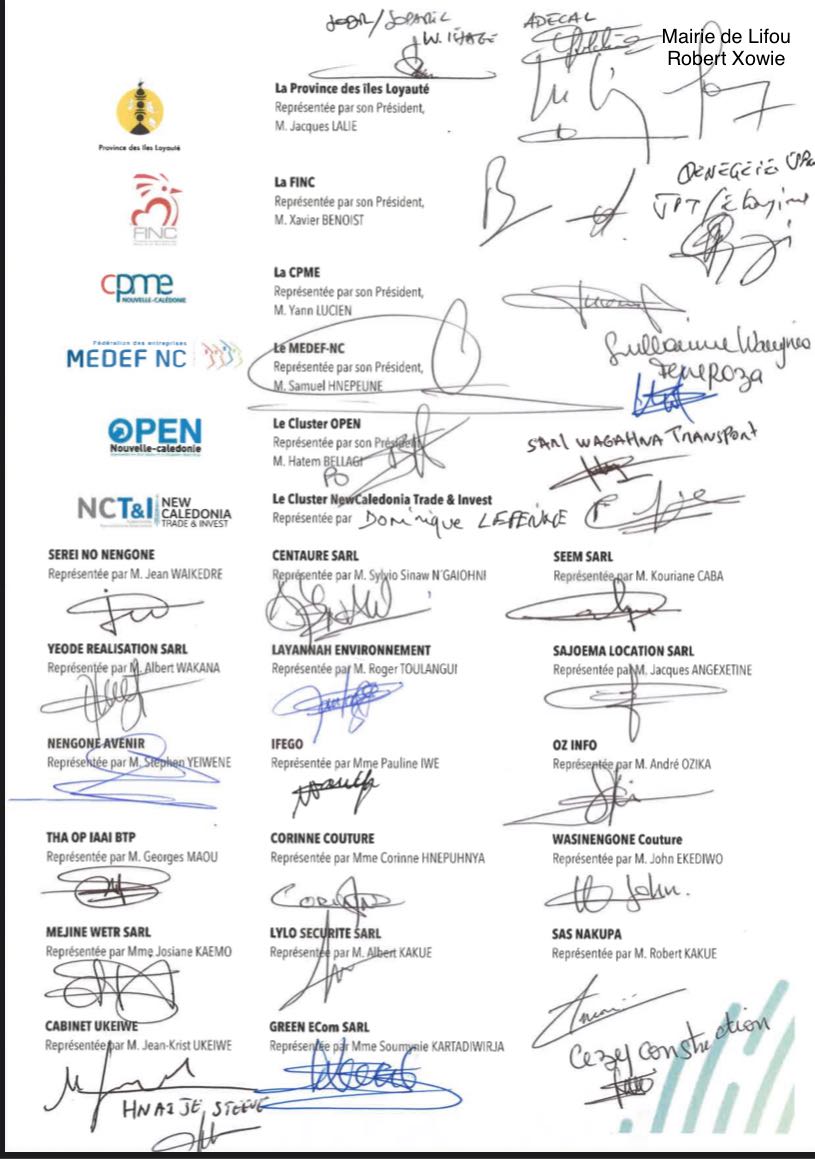 W. IHAGE
ADECAL
Mairie de Lifou
Robert Xowie
Province des îles Loyauté
La Province des îles Loyauté
Représentée par son Président,
M. Jacques LALIE
FINC
La FINC
Représentée par son Président,
M. Xavier BENOIST
cpme
NOUVELLE-CALÉDONIE
La CPME
Représentée par son Président,
M. Yann LUCIEN
Fédération des entreprises
MEDEF NC
Le MEDEF-NC
Représentée par son Président,
M. Samuel HNEPEUNE
Guillaume
OPEN
Nouvelle-calédonie
Le Cluster OPEN
Représentée par son Président
M. Hatem BELLAGI
PO
SARL WAGAHNA TRANSPORT
NCT&I NEW
CALEDONIA
TRADE & INVEST
Le Cluster NewCaledonia Trade & Invest
Représentée par Dominique LEFEIVRE
SEREI NO NENGONE
Représentée par M. Jean WAIKEDRE
CENTAURE SARL
Représentée par M. Sylvio Sinaw N'GAIOHNI
SEEM SARL
Représentée par M. Kouriane CABA
YEODE REALISATION SARL
Représentée par M. Albert WAKANA
LAYANNAH ENVIRONNEMENT
Représentée par M. Roger TOULANGUI
SAJOEMA LOCATION SARL
Représentée par M. Jacques ANGEXETINE
NENGONE AVENIR
Représentée par M. Stephen YEIWENE
IFEGO
Représentée par Mme Pauline IWE
OZ INFO
Représentée par M. André OZIKA
THA OP IAAI BTP
Représentée par M. Georges MAOU
CORINNE COUTURE
Représentée par Mme Corinne HNEPUHNYA
WASINENGONE Couture
Représentée par M. John EKEDIWO
John.
MEJINE WETR SARL
Représentée par Mme Josiane KAEMO
LYLO SECURITE SARL
Représentée par M. Albert KAKUE
SAS NAKUPA
Représentée par M. Robert KAKUE
CABINET UKEIWE
Représentée par M. Jean-Krist UKEIWE
GREEN ECom SARL
Représentée par Mme Soumynie KARTADIWIRJA
Cezey construction
HNAIJE STEEVE